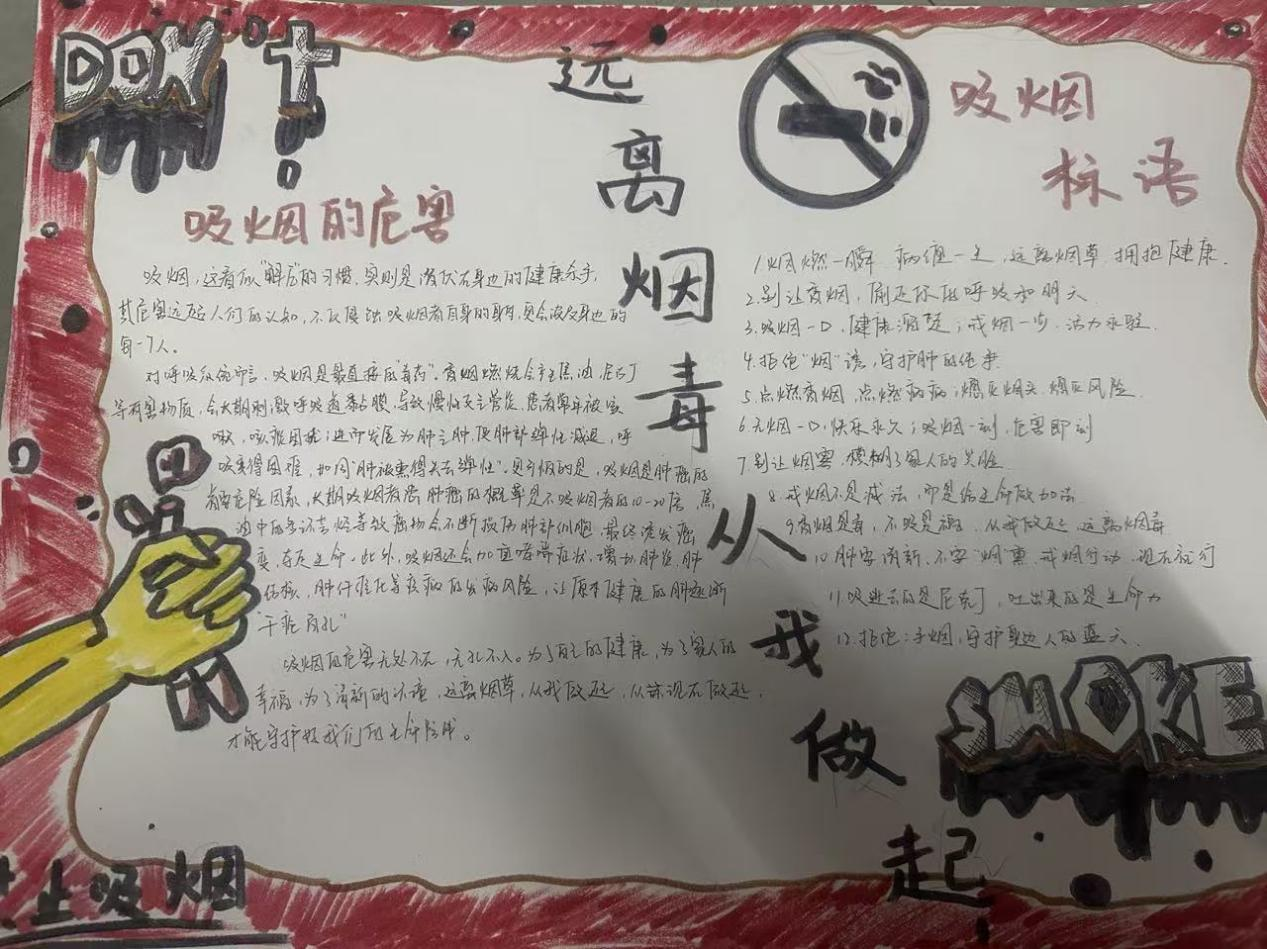 DON't
远离烟毒从我做起
吸烟的危害
吸烟，这看似"解压"的习惯，实则是潜伏在身边的健康杀手，
其危害远超人们的认知，不仅侵蚀吸烟者自身的身体，更会波及身边的
每一个人。
对呼吸系统而言，吸烟是最直接的"毒药"。香烟燃烧会产生焦油、尼古丁
等有害物质，会长期刺激呼吸道黏膜，导致慢性支气管炎，患者常年被咳
嗽、咳痰困扰；进而发展为肺气肿，使肺部弹性减退，呼
吸变得困难，如同"肺被熏得失去弹性"。更可怕的是，吸烟是肺癌的
首要危险因素，长期吸烟者患肺癌的概率是不吸烟者的10-20倍，焦
油中的多环芳烃等致癌物会不断损伤肺部细胞，最终诱发癌
变，夺走生命。此外，吸烟还会加重哮喘症状，增加肺炎、肺
结核、肺纤维化等疾病的发病风险，让原本健康的肺逐渐
"千疮百孔"
吸烟的危害无处不在，无孔不入。为了自己的健康，为了家人的
幸福，为了清新的环境，远离烟草，从我做起，从现在做起，
才能守护好我们的生命防线。
吸烟
标语
1.烟燃一瞬 病缠一生，远离烟草 拥抱健康.
2.别让香烟，偷走你的呼吸和明天
3.吸烟一口，健康溜走；戒烟一步，活力永驻.
4.拒绝"烟"诱，守护肺的纯净
5.点燃香烟，点燃疾病；熄灭烟头，熄灭风险.
6.无烟一口，快乐永久；吸烟一刻，危害即刻
7.别让烟雾，模糊了家人的笑脸
8.戒烟不是减法，而是给生命做加法
9.香烟是毒，不吸是福，从我做起，远离烟毒
10.肺要清新，不要"烟"熏，戒烟行动，现在就行
11.吸进去的是尼古丁，吐出来的是生命力
12.拒绝二手烟，守护身边人的蓝天.
SMOKE
止吸烟